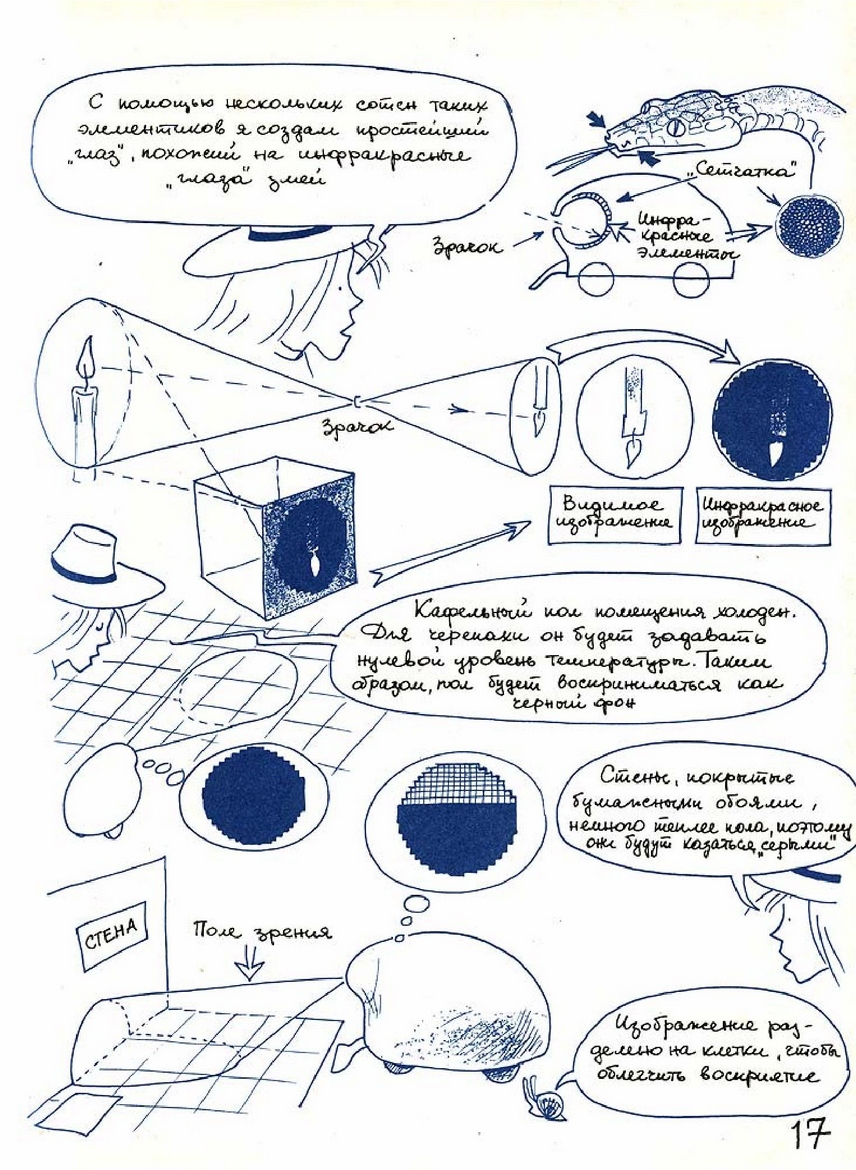 С помощью нескольких сотен таких
элементиков я создам простейший
„глаз", похожий на инфракрасные
„глаза" змей
„Сетчатка"
Инфра-
красные
элементы
Зрачок
Зрачок
Видимое
изображение
Инфракрасное
изображение
Кафельный пол помещения холоден.
Для черепахи он будет задавать
нулевой уровень температуры. Таким
образом, пол будет восприниматься как
черный фон
Стены, покрытые
бумажными обоями,
немного теплее пола, поэтому
они будут казаться „серыми"
СТЕНА
Поле зрения
Изображение раз-
делено на клетки, чтобы
облегчить восприятие
17